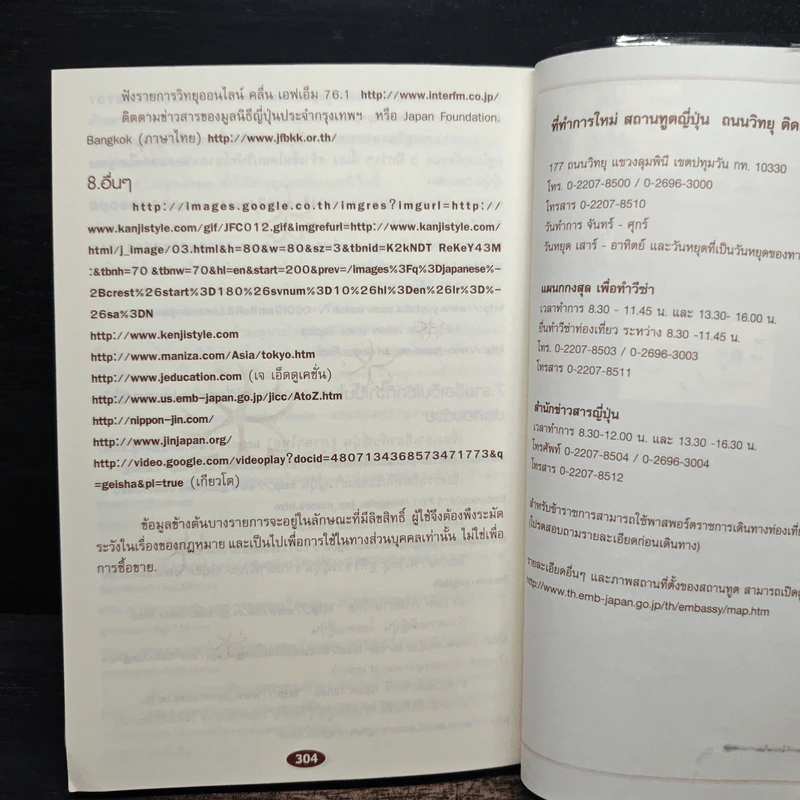 ฟังรายการวิทยุออนไลน์ คลื่น เอฟเอ็ม 76.1 http://www.interfm.co.jp/
ติดตามข่าวสารของมูลนิธิญี่ปุ่นประจำกรุงเทพฯ หรือ Japan Foundation,
Bangkok (ภาษาไทย) http://www.jfbkk.or.th/
8.อื่นๆ
http://images.google.co.th/imgres?imgurl=http://
www.kanjistyle.com/gif/JFC012.gif&imgrefurl=http://www.kanjistyle.com/
html/j_image/03.html&h=80&w=80&sz=3&tbnid=K2kNDT ReKeY43M
:&tbnh=70 &tbnw=70&hl=en&start=200&prev=/images%3Fq%3Djapanese%-
2Bcrest%26start%3D180%26svnum%3D10%26hl%3Den%26lr%3D%-
26sa%3DN
http://www.kenjistyle.com
http://www.maniza.com/Asia/tokyo.htm
http://www.jeducation.com (เจ เอ็ดดูเคชั่น)
http://www.us.emb-japan.go.jp/jicc/AtoZ.htm
http://nippon-jin.com/
http://www.jinjapan.org/
http://video.google.com/videoplay?docid=4807134368573471773&q
=geisha&pl=true (เกียวโต)
ข้อมูลข้างต้นบางรายการจะอยู่ในลักษณะที่มีลิขสิทธิ์ ผู้ใช้จึงต้องพึงระมัด
ระวังในเรื่องของกฎหมาย และเป็นไปเพื่อการใช้ในทางส่วนบุคคลเท่านั้น ไม่ใช่เพื่อ
การซื้อขาย.
304
ที่ทำการใหม่ สถานทูตญี่ปุ่น ถนนวิทยุ ติด
177 ถนนวิทยุ แขวงลุมพินี เขตปทุมวัน กท. 10330
โทร. 0-2207-8500 / 0-2696-3000
โทรสาร 0-2207-8510
วันทำการ จันทร์ - ศุกร์
วันหยุด เสาร์ - อาทิตย์ และวันหยุดที่เป็นวันหยุดของทา
แผนกกงสุล เพื่อทำวีซ่า
เวลาทำการ 8.30 - 11.45 น. และ 13.30- 16.00 น.
ยื่นทำวีซ่าท่องเที่ยว ระหว่าง 8.30 -11.45 น.
โทร. 0-2207-8503 / 0-2696-3003
โทรสาร 0-2207-8511
สำนักข่าวสารญี่ปุ่น
เวลาทำการ 8.30-12.00 น. และ 13.30 -16.30 น.
โทรศัพท์ 0-2207-8504 / 0-2696-3004
โทรสาร 0-2207-8512
สำหรับข้าราชการสามารถใช้พาสพอร์ตราชการเดินทางท่องเที่ย
(โปรดสอบถามรายละเอียดก่อนเดินทาง)
รายละเอียดอื่นๆ และภาพสถานที่ตั้งของสถานทูต สามารถเปิดดู
http://www.th.emb-japan.go.jp/th/embassy/map.htm